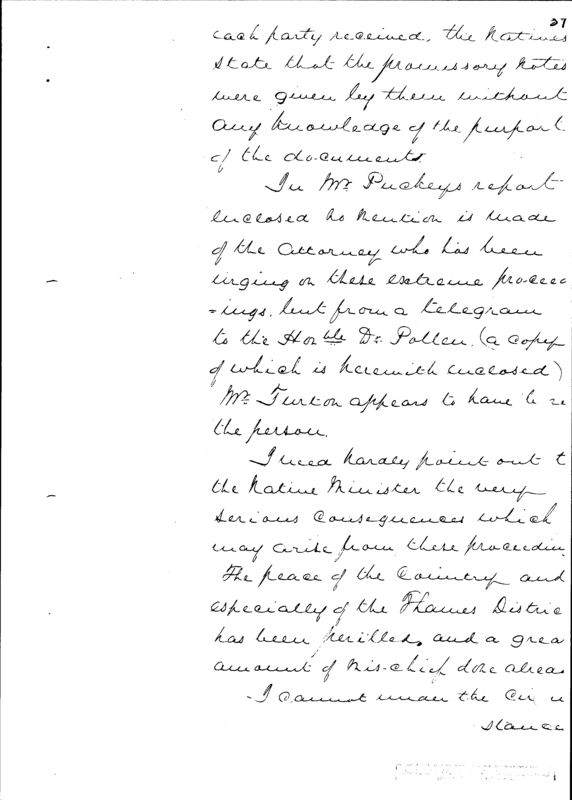 27
each party received. the Natives
state that the promissory notes
were given by them without
any knowledge of the purport
of the documents.
In Mr. Puckeys report
enclosed no mention is made
of the Attorney who has been
urging on these extreme proceed
=ings, but from a telegram
to the Honble Dr. Pollen. (a copy
of which is herewith enclosed)
Mr. Turton appears to have be
the person.
I need hardly point out t
the Native Minister the very
serious consequences which
may arise from these proceedin
The peace of the Country and
especially of the Thames Distric
has been perilled, and a grea
amount of mis-chief done alrea
I cannot under the Circu
stance